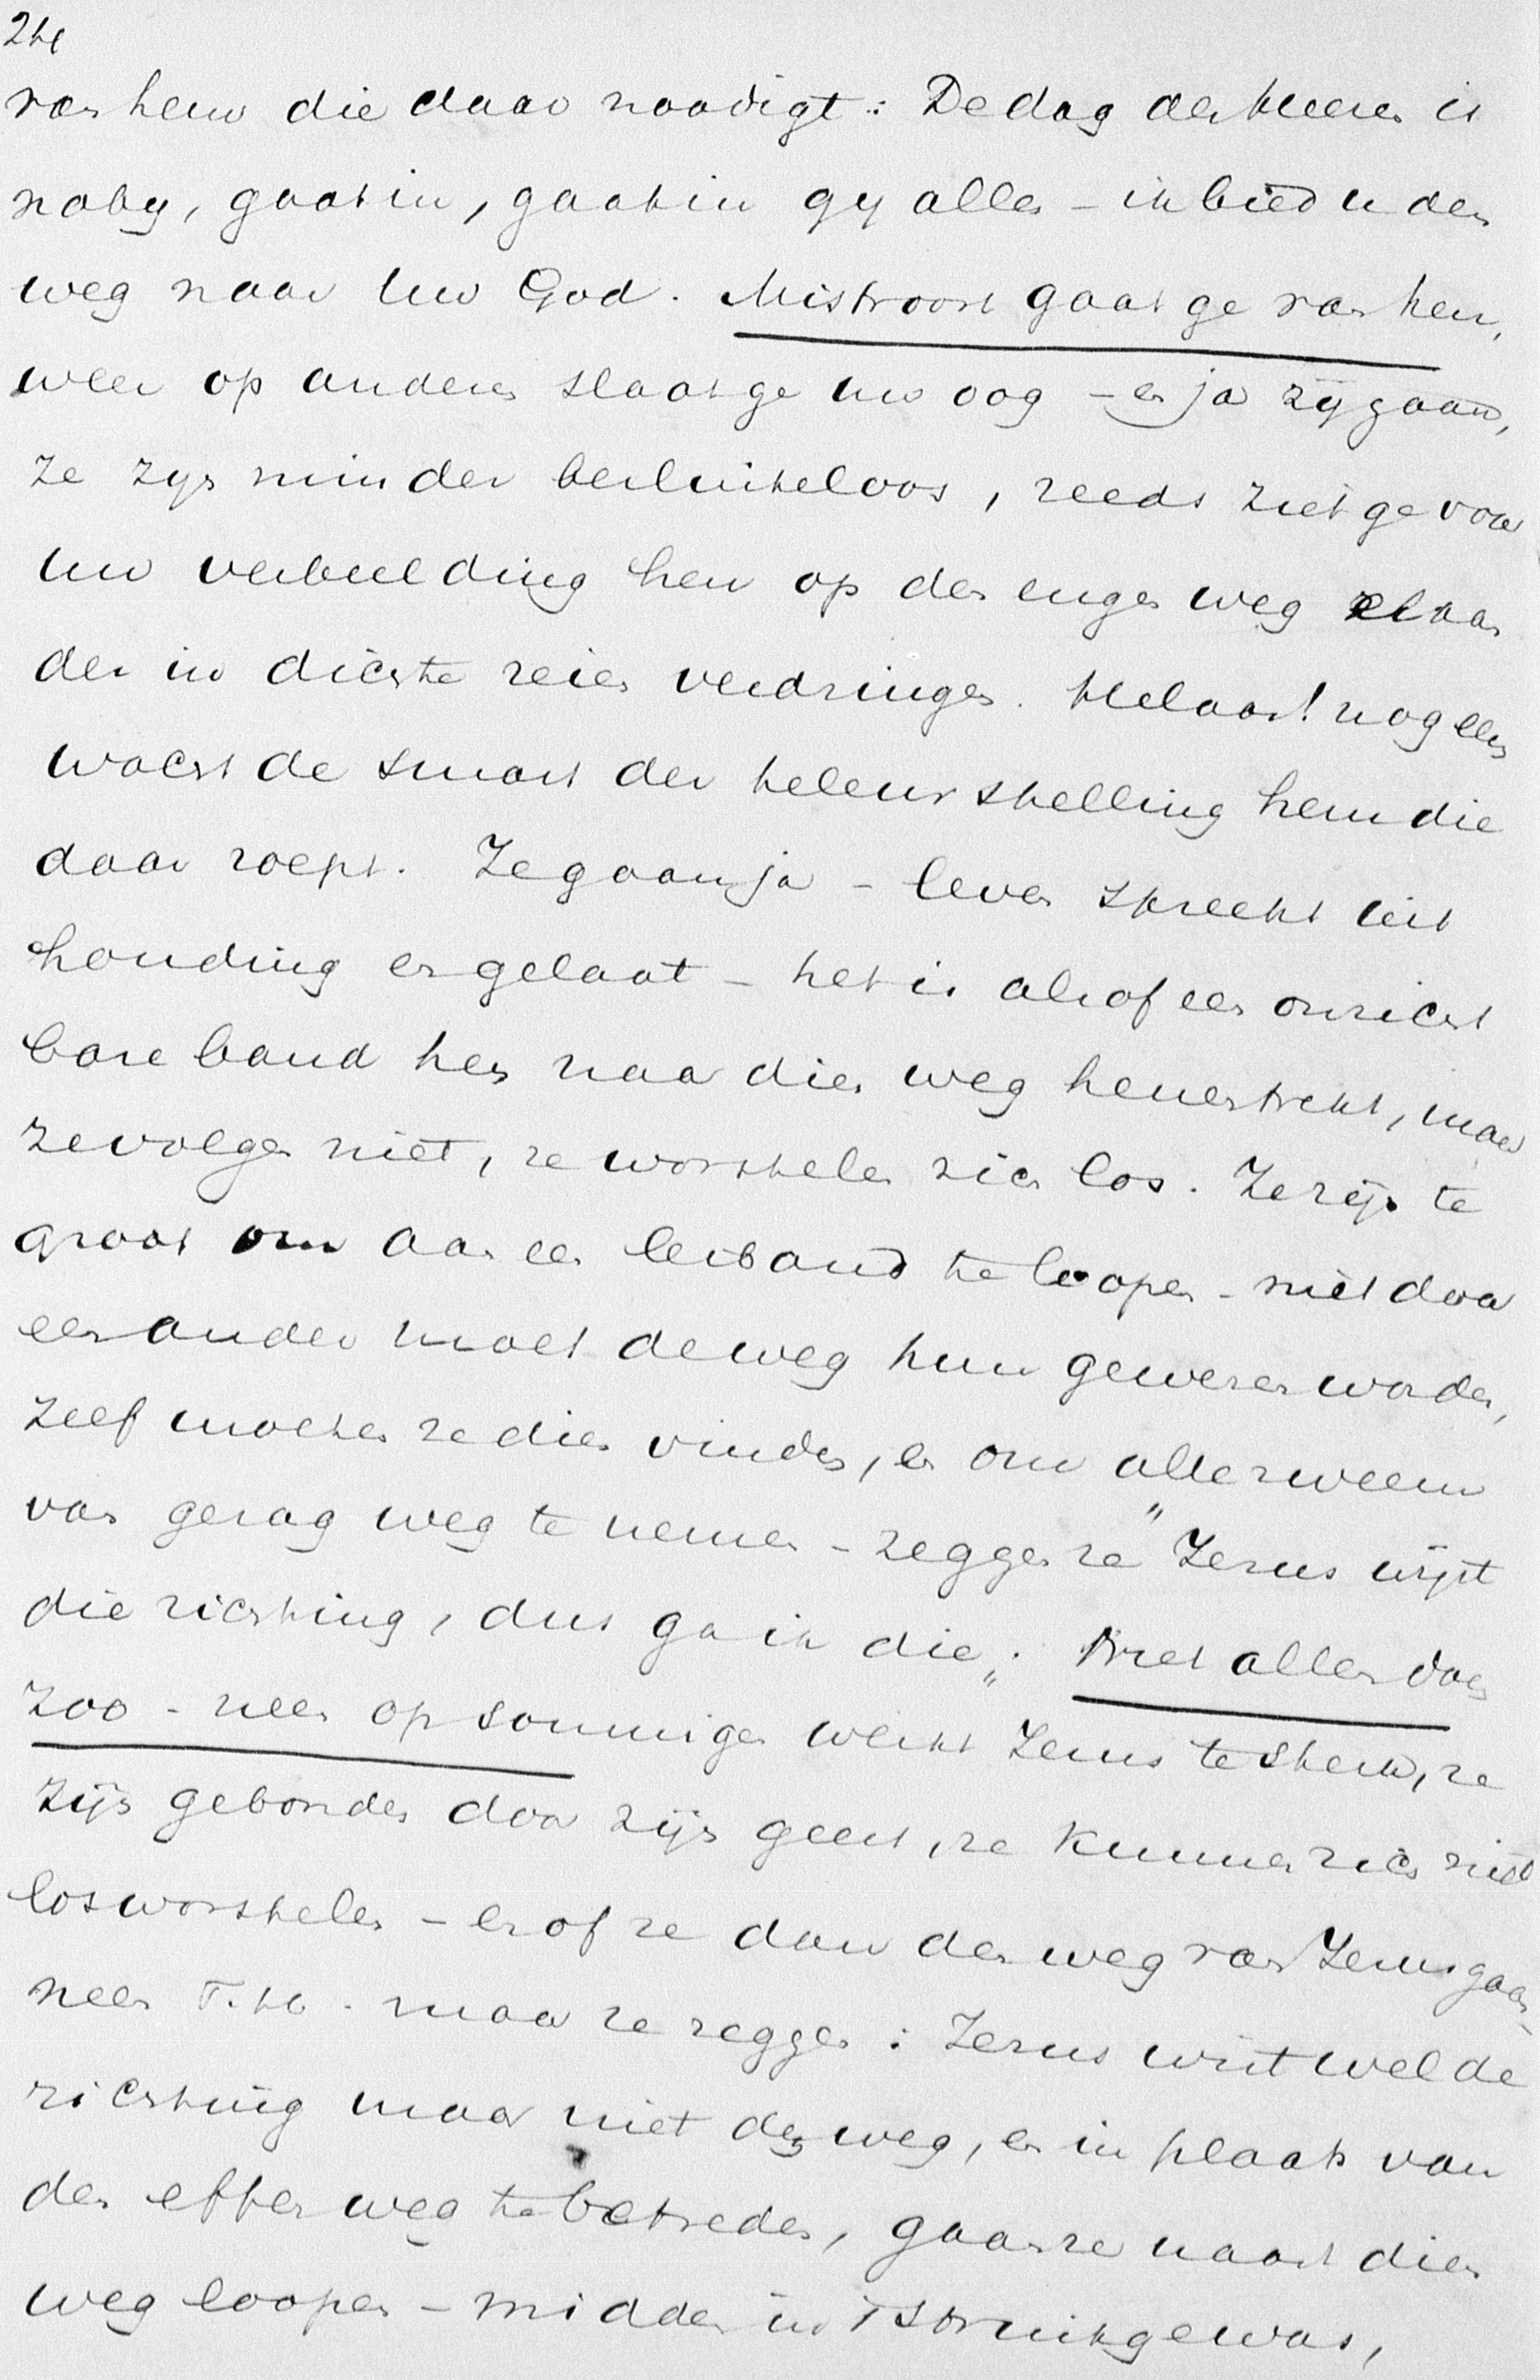 24
van hem die daar noodigt: De dag des Heeren is
naby, gaat in, gaat in gy allen – ik bied u den
weg naar Uw God. Mistroost gaat ge van hen,
weer op anderen slaat ge uw oog – en ja zij gaan,
ze zyn minder besluiteloos, reeds ziet ge voor
Uw verbeelding hen op den engen weg elkan
der in dichte reien verdringen. Helaas! nog een
wacht de smart der teleurstelling hem die
daar roept. Ze gaan ja – leven spreekt uit
houding en gelaat – het is alsof een onzicht
bare band hen naar dien weg henentrekt, maar
ze volgen niet, ze worstelen zich los. Ze zijn te
groot om aan een leiband te loopen – niet door
een ander moet de weg hun gewezen worden,
zelf moeten ze dien vinden, en om alle zweem
van gezag weg te nemen – zeggen ze "Jezus wijst
die richting, dus ga ik die". Niet allen doen
zoo – neen op sommigen werkt Jezus te sterk, ze
zijn gebonden door zijn geest, ze kunnen zich niet
losworstelen – en of ze dan den weg van Jezus gaan,
neen T.H. maar ze zeggen: Jezus wist wel de
richting maar niet den weg, en in plaats van
den effen weg te betreden, gaan ze naast dien
weg loopen – midden in 't struikgewas,